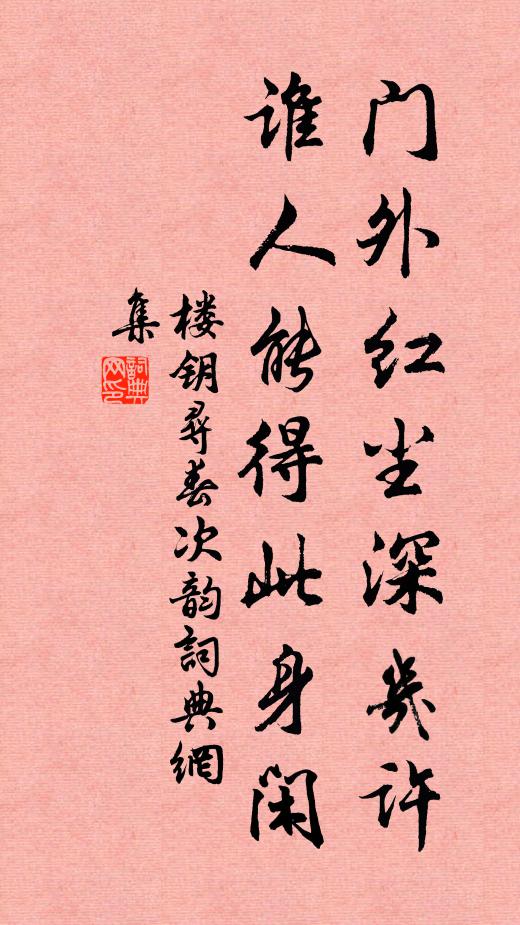 门外红尘深幾许
谁人能得此身闲
楼钥尋春次韵詞典網
集
詞典
网印